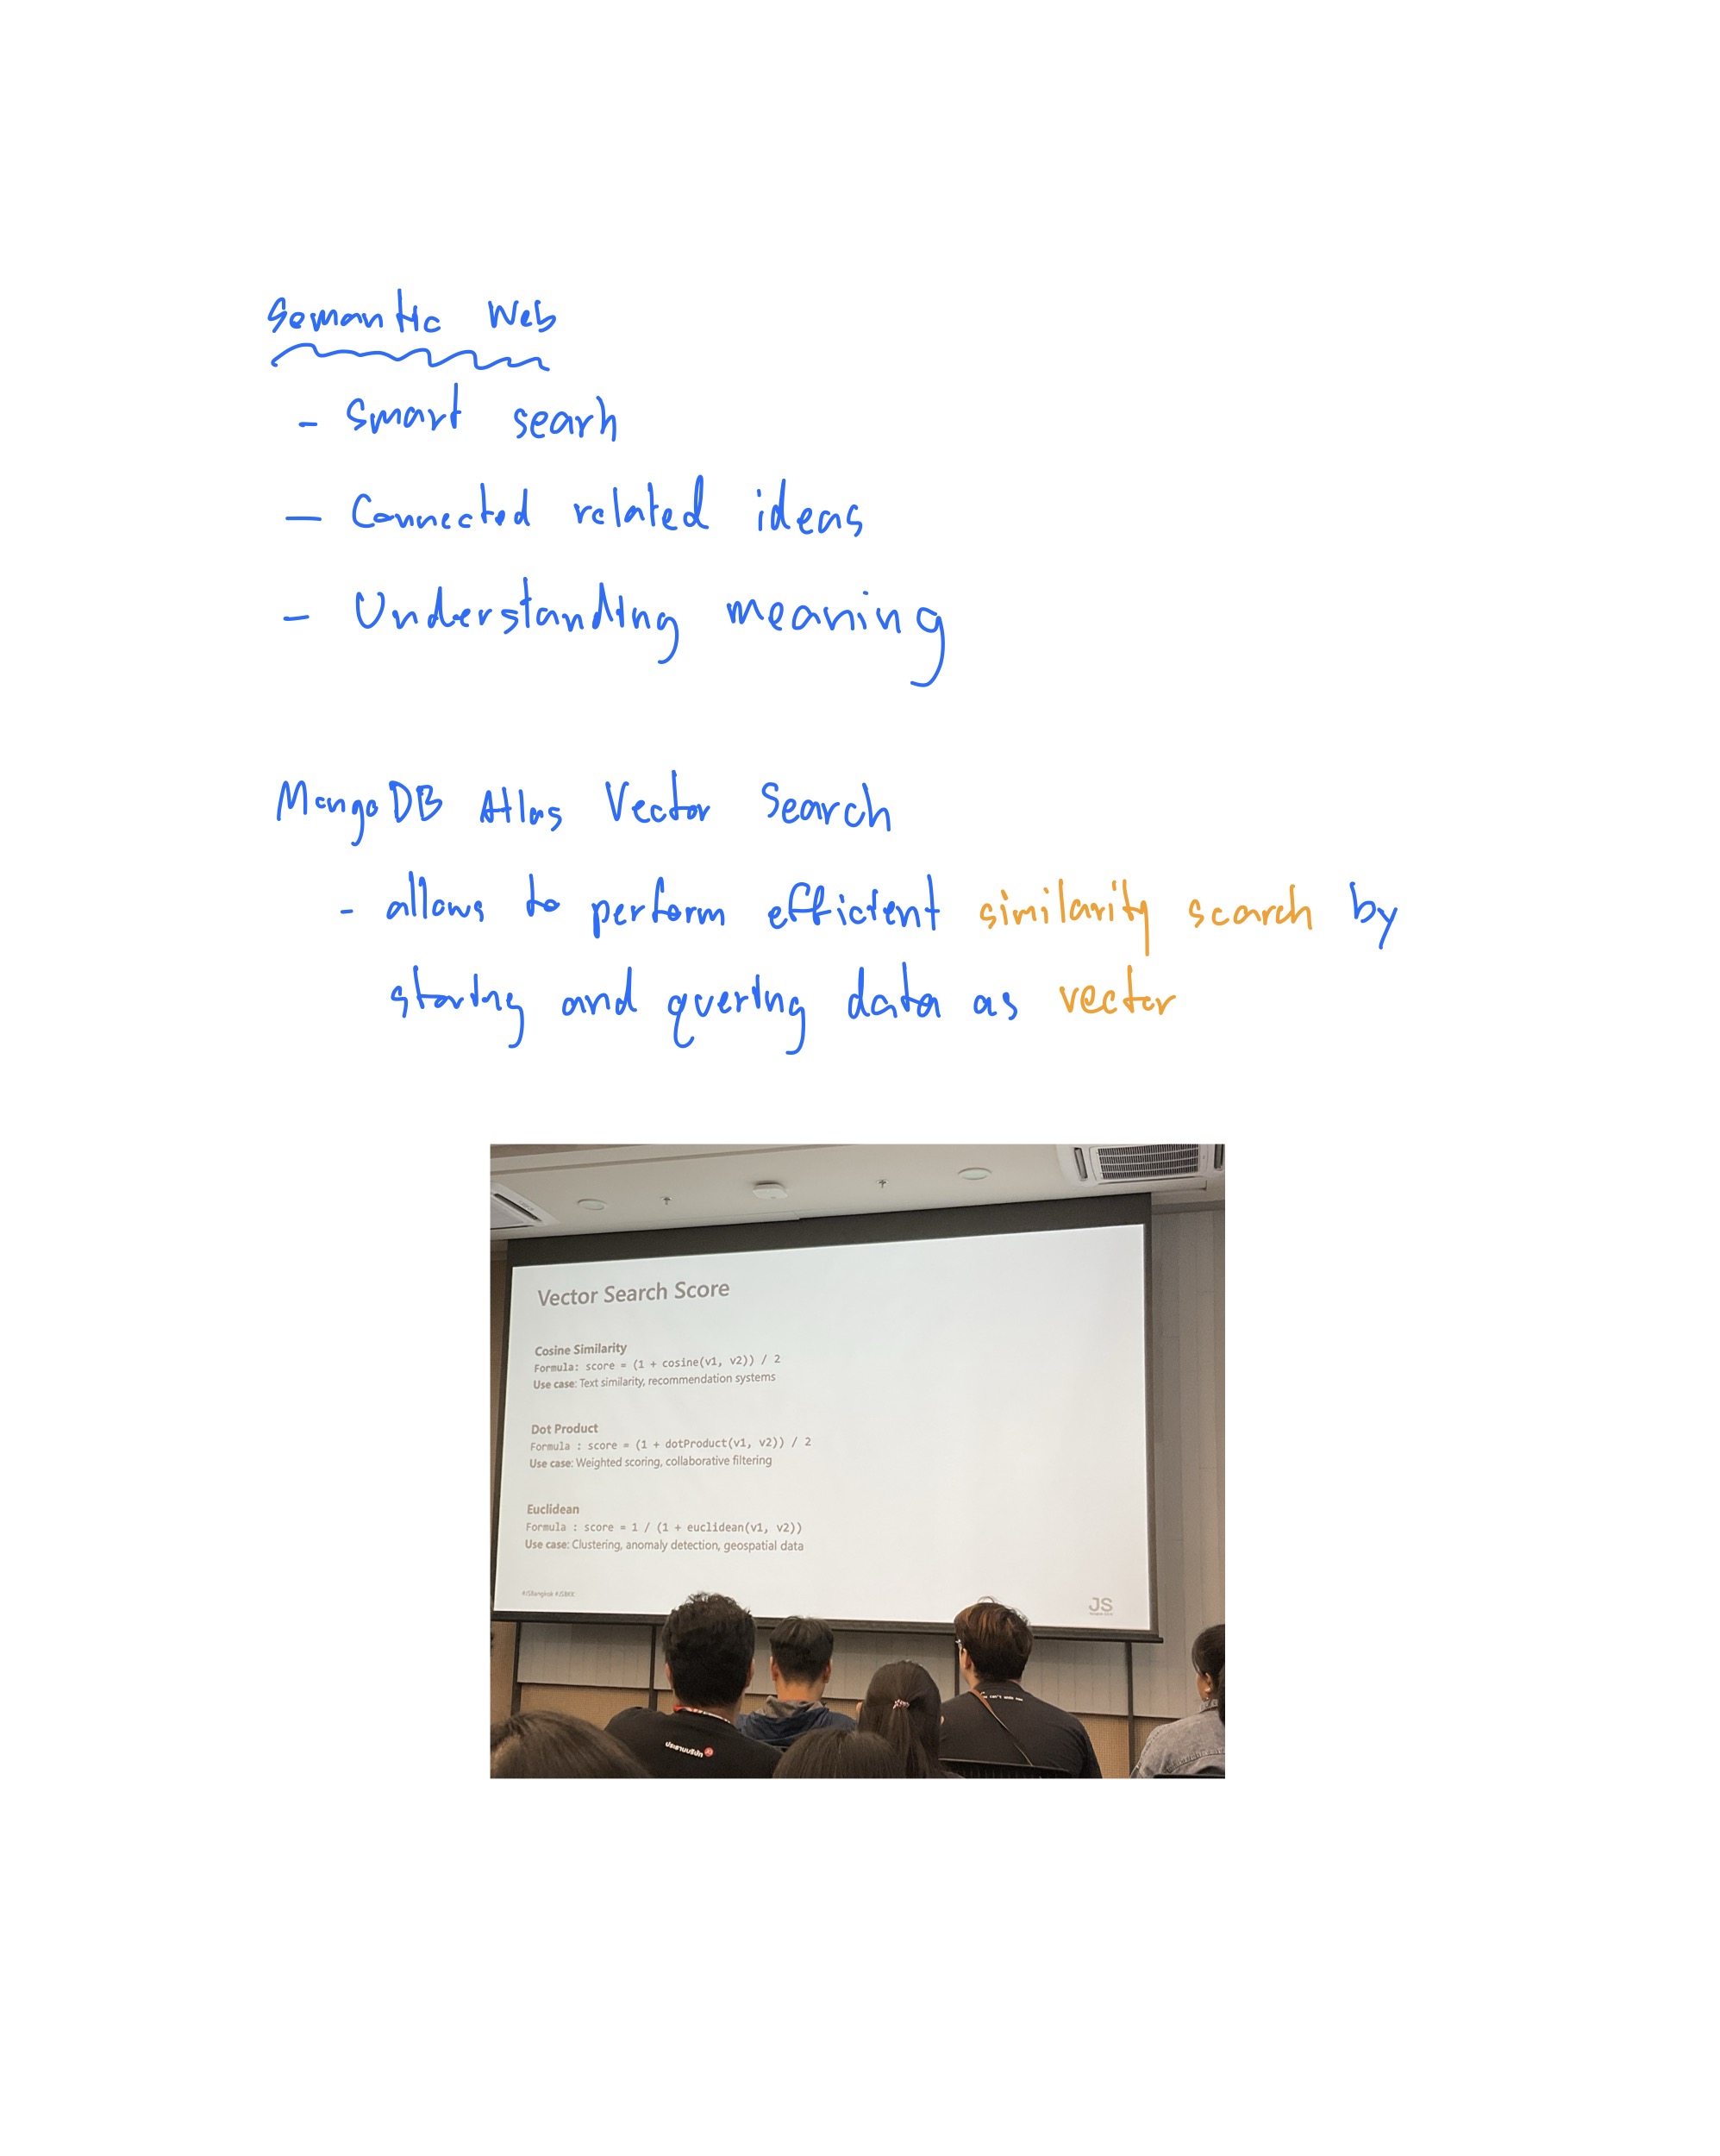 Semantic Web
- Smart searh
- Connected related ideas
- Understanding meaning
MongoDB Atlas Vector Search
- allows to perform efficient similarity search by
storing and quering data as vector
Vector Search Score
Cosine Similarity
Formula: score = (1 + cosine(v1, v2)) / 2
Use case: Text similarity, recommendation systems
Dot Product
Formula : score = (1 + dotProduct(v1, v2)) / 2
Use case: Weighted scoring, collaborative filtering
Euclidean
Formula : score = 1 / (1 + euclidean(v1, v2))
Use case: Clustering, anomaly detection, geospatial data
#JSBangkok #JSBKK
JS